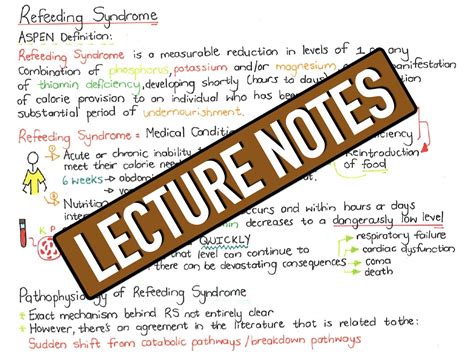 Refeeding Syndrome
ASPEN Definition:
Refeeding Syndrome is a measurable reduction in levels of 1 or any
Combination of phosphorus, potassium and/or magnesium, manifestation
of thiamin deficiency, developing shortly (hours to days)
of calorie provision to an individual who has been
substantial period of undernourishment.
Refeeding Syndrome = Medical Condition ciency
Acute or chronic inability to Reintroduction
meet their calorie need of food
6 weeks → abdom
Nutrition
inter occurs and within hours or days
decreases to a dangerously low level
QUICKLY
respiratory failure
cardiac dysfunction
that level can continue to
coma
there can be devastating consequences
death
LECTURE NOTES
Pathophysiology of Refeeding Syndrome
* Exact mechanism behind RS not entirely clear
* However, there's an agreement in the literature that is related to the:
Sudden shift from catabolic pathways / breakdown pathways